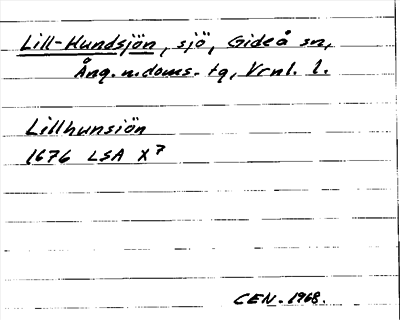 Lill-Hundsjön, sjö, Gideå sn,
Ång. n. doms. tg, Vrnl. l.
Lillhunsiön
1676 LSA X7
CEN. 1968.